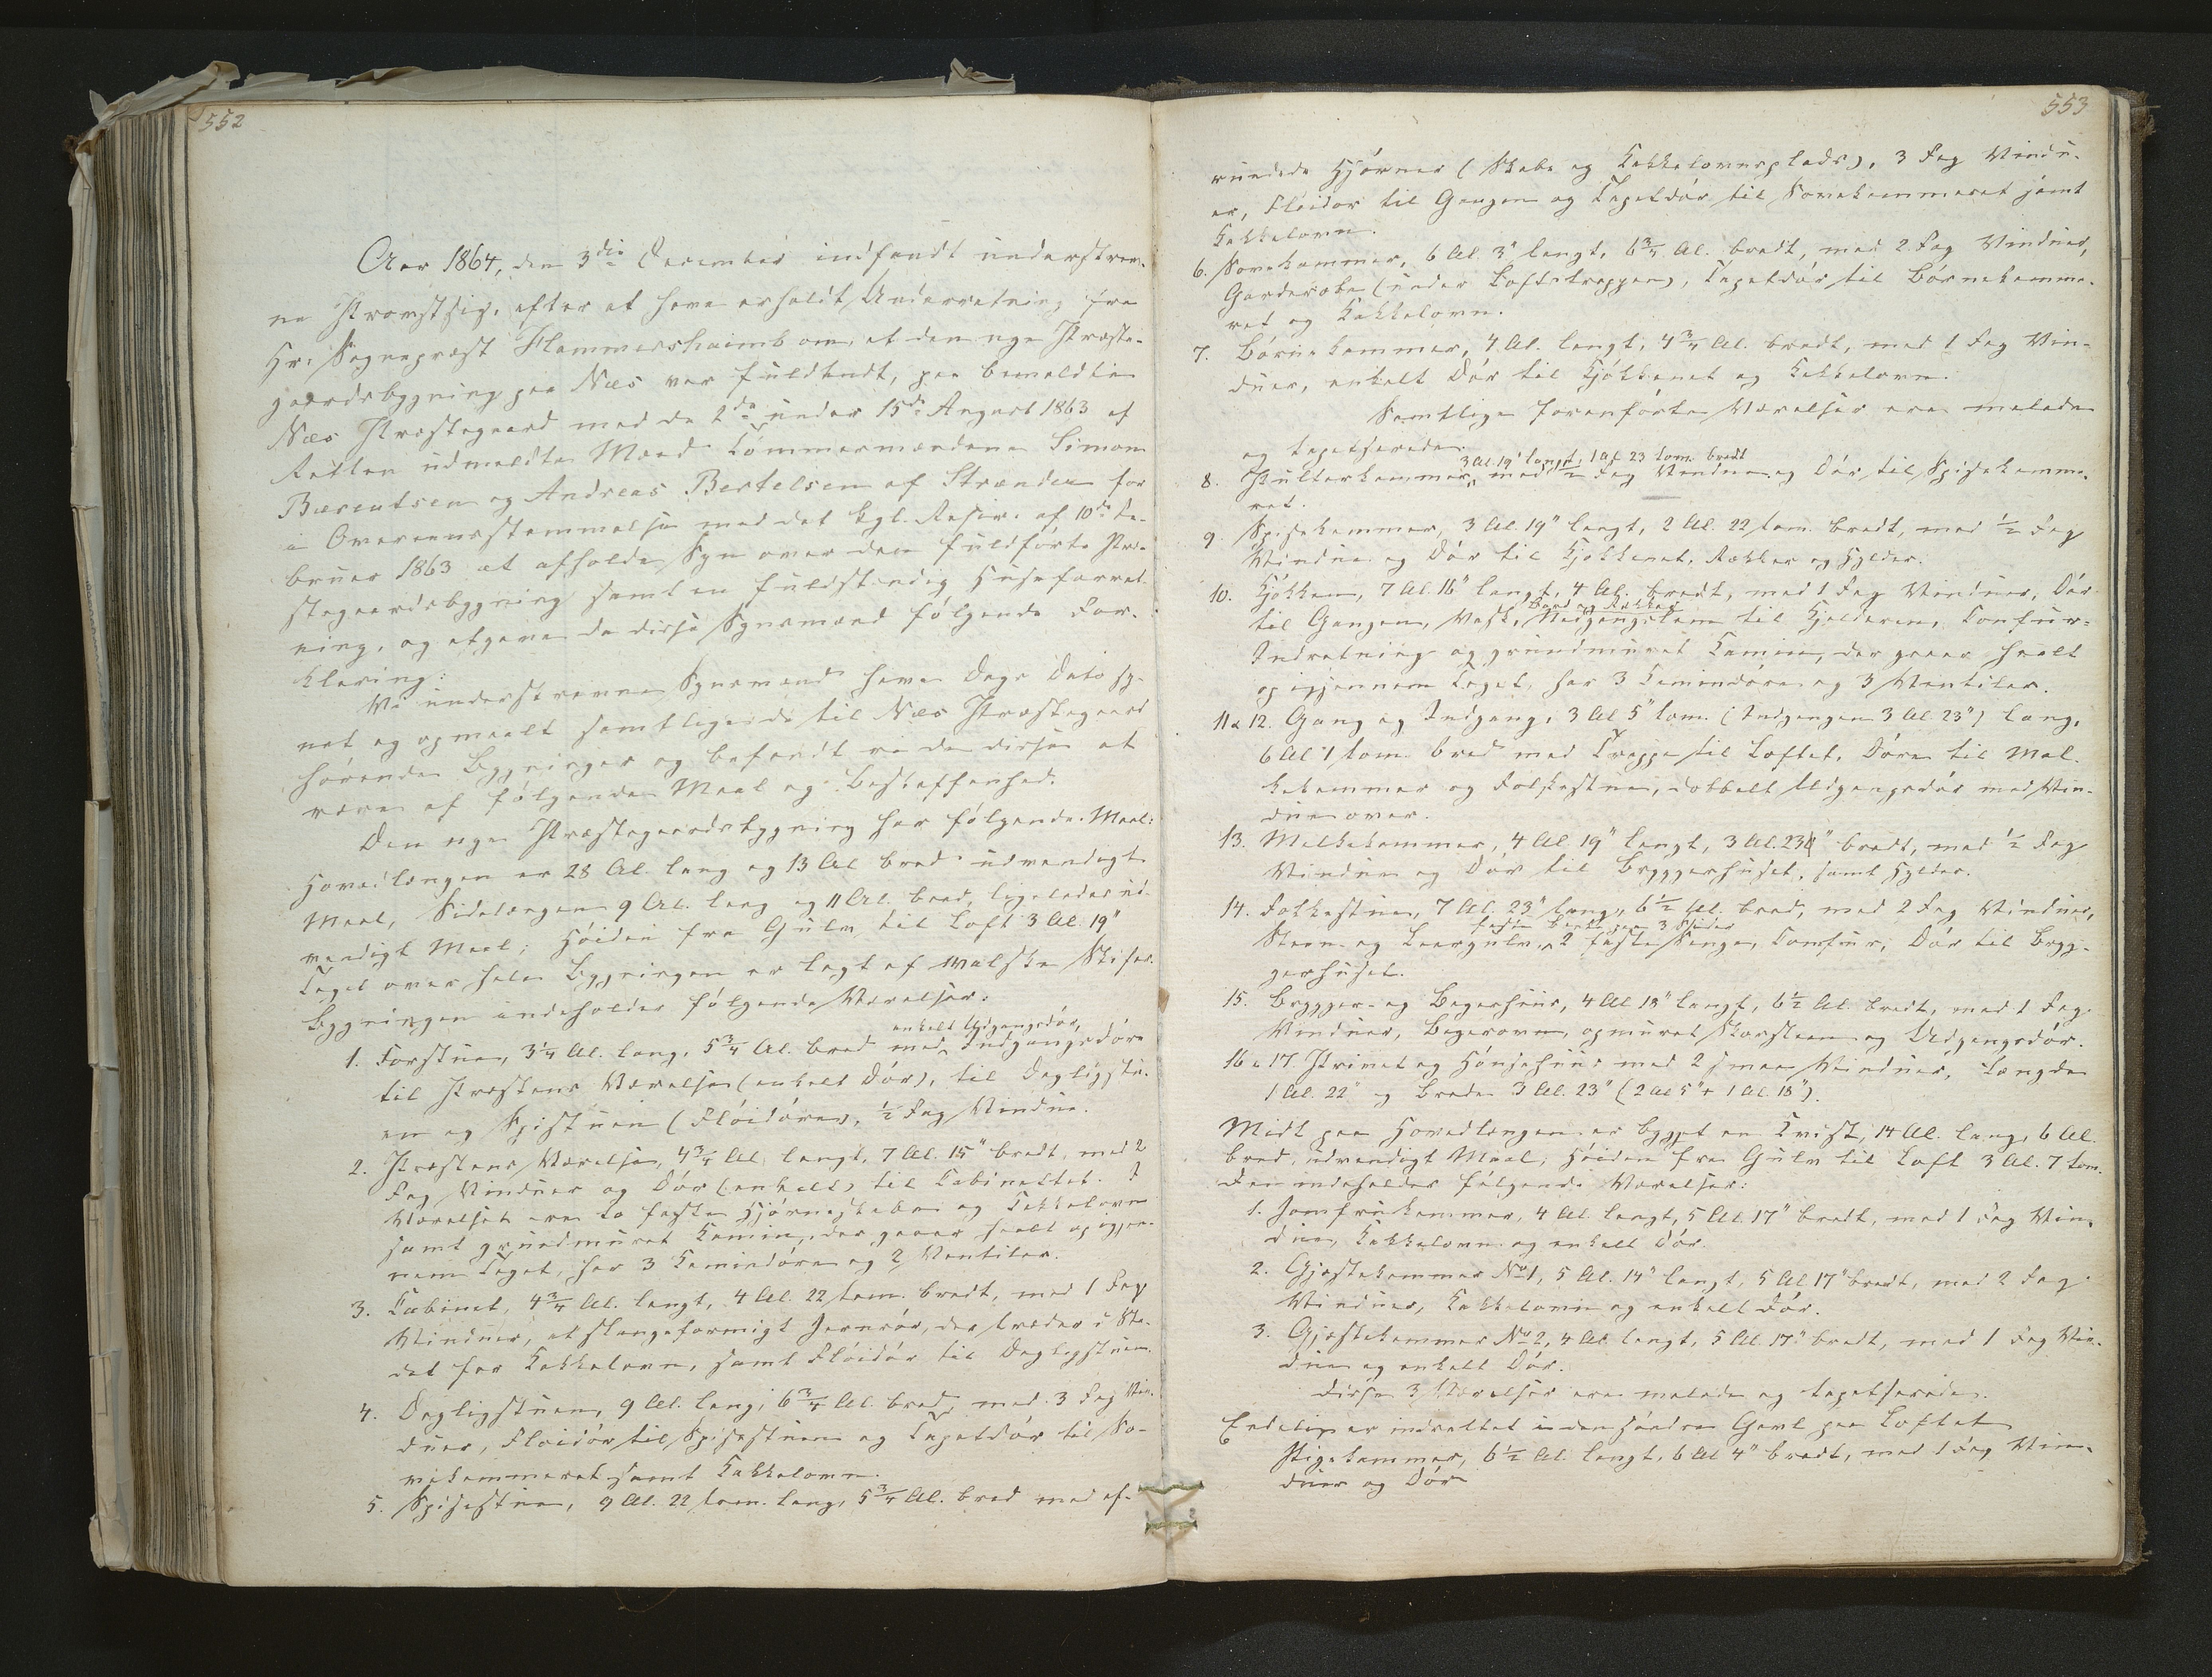 552
Aar 1864, den 3die December indfandt underskrev-
ne Provst sig, efter at have erholdt Underretning fra
Hr. Sognepræst Hammershaimb om, at den nye Præste-
gaardsbygning paa Næs var fuldendt, paa bemeldte
Næs Præstegaard med de 2de under 15de August 1863 af
Retten udmeldte Mænd Tømmermændene Simon
Bærentsen og Andreas Bertelsen af Strænder for
i Overeensstemmelse med det kgl. Rescr. af 10de Fe-
bruar 1863 at afholde Syn over den fuldførte Præ-
stegaardsbygning samt en fuldstændig Huusforret-
ning, og afgave da disse Synsmænd følgende For-
klaring:
Vi underskrevne Synsmænd have Dags Dato sy-
net og opmaalt samtlige de til Næs Præstegaard
hørende Bygninger og befandt vi da disse at
være af følgende Maal og Beskaffenhed.
Den nye Præstegaardsbygning har følgende Maal:
Hovedlængen er 28 Al. lang og 13 Al bred udvendigt
Maal, Sidelængen 9 Al. lang og 11 Al. bred, ligeledes ud-
vendigt Maal; Høiden fra Gulv til Loft 3 Al. 19"
Taget over hele Bygningen er lagt af walske Skifer.
Bygningen indeholder følgende Værelser:
enkelt Udgangsdør,
1. Forstuen, 3¼ Al. lang, 5¾ Al. bred med Indgangsdøre
til Præstens Værelse (enkelt Dør), til Dagligstu-
en og Spisstuen (Fløidøre), ½ Fag Vindue.
2. Præstens Værelse, 4¾ Al. langt, 7 Al. 15" bredt, med 2
Fag Vinduer og Dør (enkelt) til Cabinettet. I
Værelset ere to faste Hjørneskabe og Kakkelovn
samt grundmuret Kamin, der gaaer heelt op igjen-
nem Taget, har 3 Kamindøre og 2 Ventiler.
3. Cabinet, 4¾ Al. langt, 4 Al. 22 tom. bredt, med 1 Fag
Vinduer, et slangeformigt Jernrør, der træder i Ste-
det for Kakkelovn, samt Fløidør til Dagligstuen.
4. Dagligstuen, 9 Al. lang, 6¾ Al. bred, med 3 Fag Vin-
duer, Fløidør til Spisestuen og Tapetdør til So-
vekammeret samt Kakkelovn.
5. Spisestuen, 9 Al. 22 tom. lang, 5¾ Al. bred med af-
553
rundede Hjørner (Skabe og Kakkelovnsplads), 3 Fag Vindu-
er, Fløidør til Gangen og Tapetdør til Sovekammeret samt
Kakkelovn.
6. Sovekammer, 6 Al. 3" langt, 6¾ Al. bredt, med 2 Fag Vinduer,
Garderobe (under Loftstrappen), Tapetdør til Børnekamme-
ret og Kakkelovn.
7. Børnekammer, 4 Al. langt, 4¾ Al. bredt, med 1 Fag Vin-
duer, enkelt Dør til Kjøkkenet og Kakkelovn.
Samtlige foranførte Værelser ere malede
og tapetserede.
3 Al. 19" langt, 1 Al 23 tom. bredt
8. Pulterkammer, med ½ Fag Vindue og Dør til Spisekamme-
ret.
9. Spisekammer, 3 Al. 19" langt, 2 Al. 22 tom. bredt, med ½ Fag
Vindue og Dør til Kjøkkenet, Rækker og Hylder.
10. Kjøkken, 7 Al. 16" langt, 4 Al. bredt, med 1 Fag Vinduer, Dør
Bord og Rækker
til Gangen, Vask, Nedgangslem til Kjelderen, Comfur-
Indretning og grundmuret Kamin, der gaaer heelt
op igjennem Taget, har 3 Kamindøre og 3 Ventiler.
11 & 12. Gang og Indgang, 3 Al 5" tom. (Indgangen 3 Al. 23") lang,
6 Al 1 tom. bred med Trappe til Loftet, Døre til Mel-
kekammer og Folkestue, dobbelt Udgangsdør med Vin-
due over.
13. Melkekammer, 4 Al 19" langt, 3 Al. 23" bredt, med ½ Fag
Vindue og Dør til Bryggerhuset, samt Hylder.
14. Folkestuen, 7 Al. 23" lang, 6½ Al. bred, med 2 Fag Vinduer,
faste Bænke paa 3 Sider
Steen- og Leergulv, 2 faste Senge, Comfur, Dør til Bryg-
gerhuset.
15. Brygger- og Bagerhuus, 4 Al 18" langt, 6½ Al. bredt, med 1 Fag
Vinduer, Bagerovn, opmuret Skorsteen og Udgangsdør.
16 & 17. Privet og Hønsehuus med 2 smaa Vinduer, Længde
1 Al. 22" og Brede 3 Al. 23" (2 Al 5" + 1 Al. 18").
Midt paa Hovedlængen er bygget en Qvist, 14 Al. lang, 6 Al.
bred, udvendigt Maal, Høiden fra Gulv til Loft 3 Al. 7 tom.
Den indeholder følgende Værelser:
1. Jomfrukammer, 4 Al. langt, 5 Al. 17" bredt, med 1 Fag Vin-
duer, Kakkelovn og enkelt Dør.
2. Gjæstekammer No 1, 5 Al. 14" langt, 5 Al 17" bredt, med 2 Fag
Vinduer, Kakkelovn og enkelt Dør.
3. Gjæstekammer No 2, 4 Al. langt, 5 Al. 17" bredt, med 1 Fag Vin-
duer og enkelt Dør.
Disse 3 Værelser ere malede og tapetserede.
Endelig er indrettet i den søndre Gavl paa Loftet
Pigekammer, 6½ Al. langt, 6 Al 4" bredt, med 1 Fag Vin-
duer og Dør